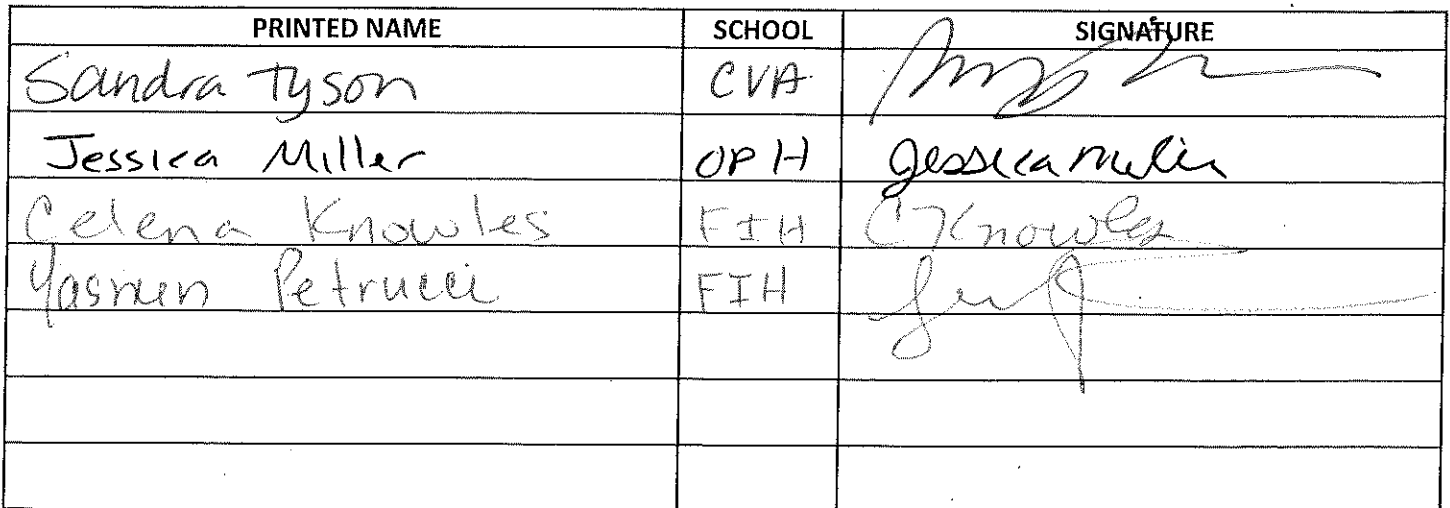 PRINTED NAME SCHOOL SIGNATURE
Sandra Tyson CVA
Jessica Miller OPH Jessica Miller
Celena Knowles FIH CKnowles
Yasmin Petrucci FIH